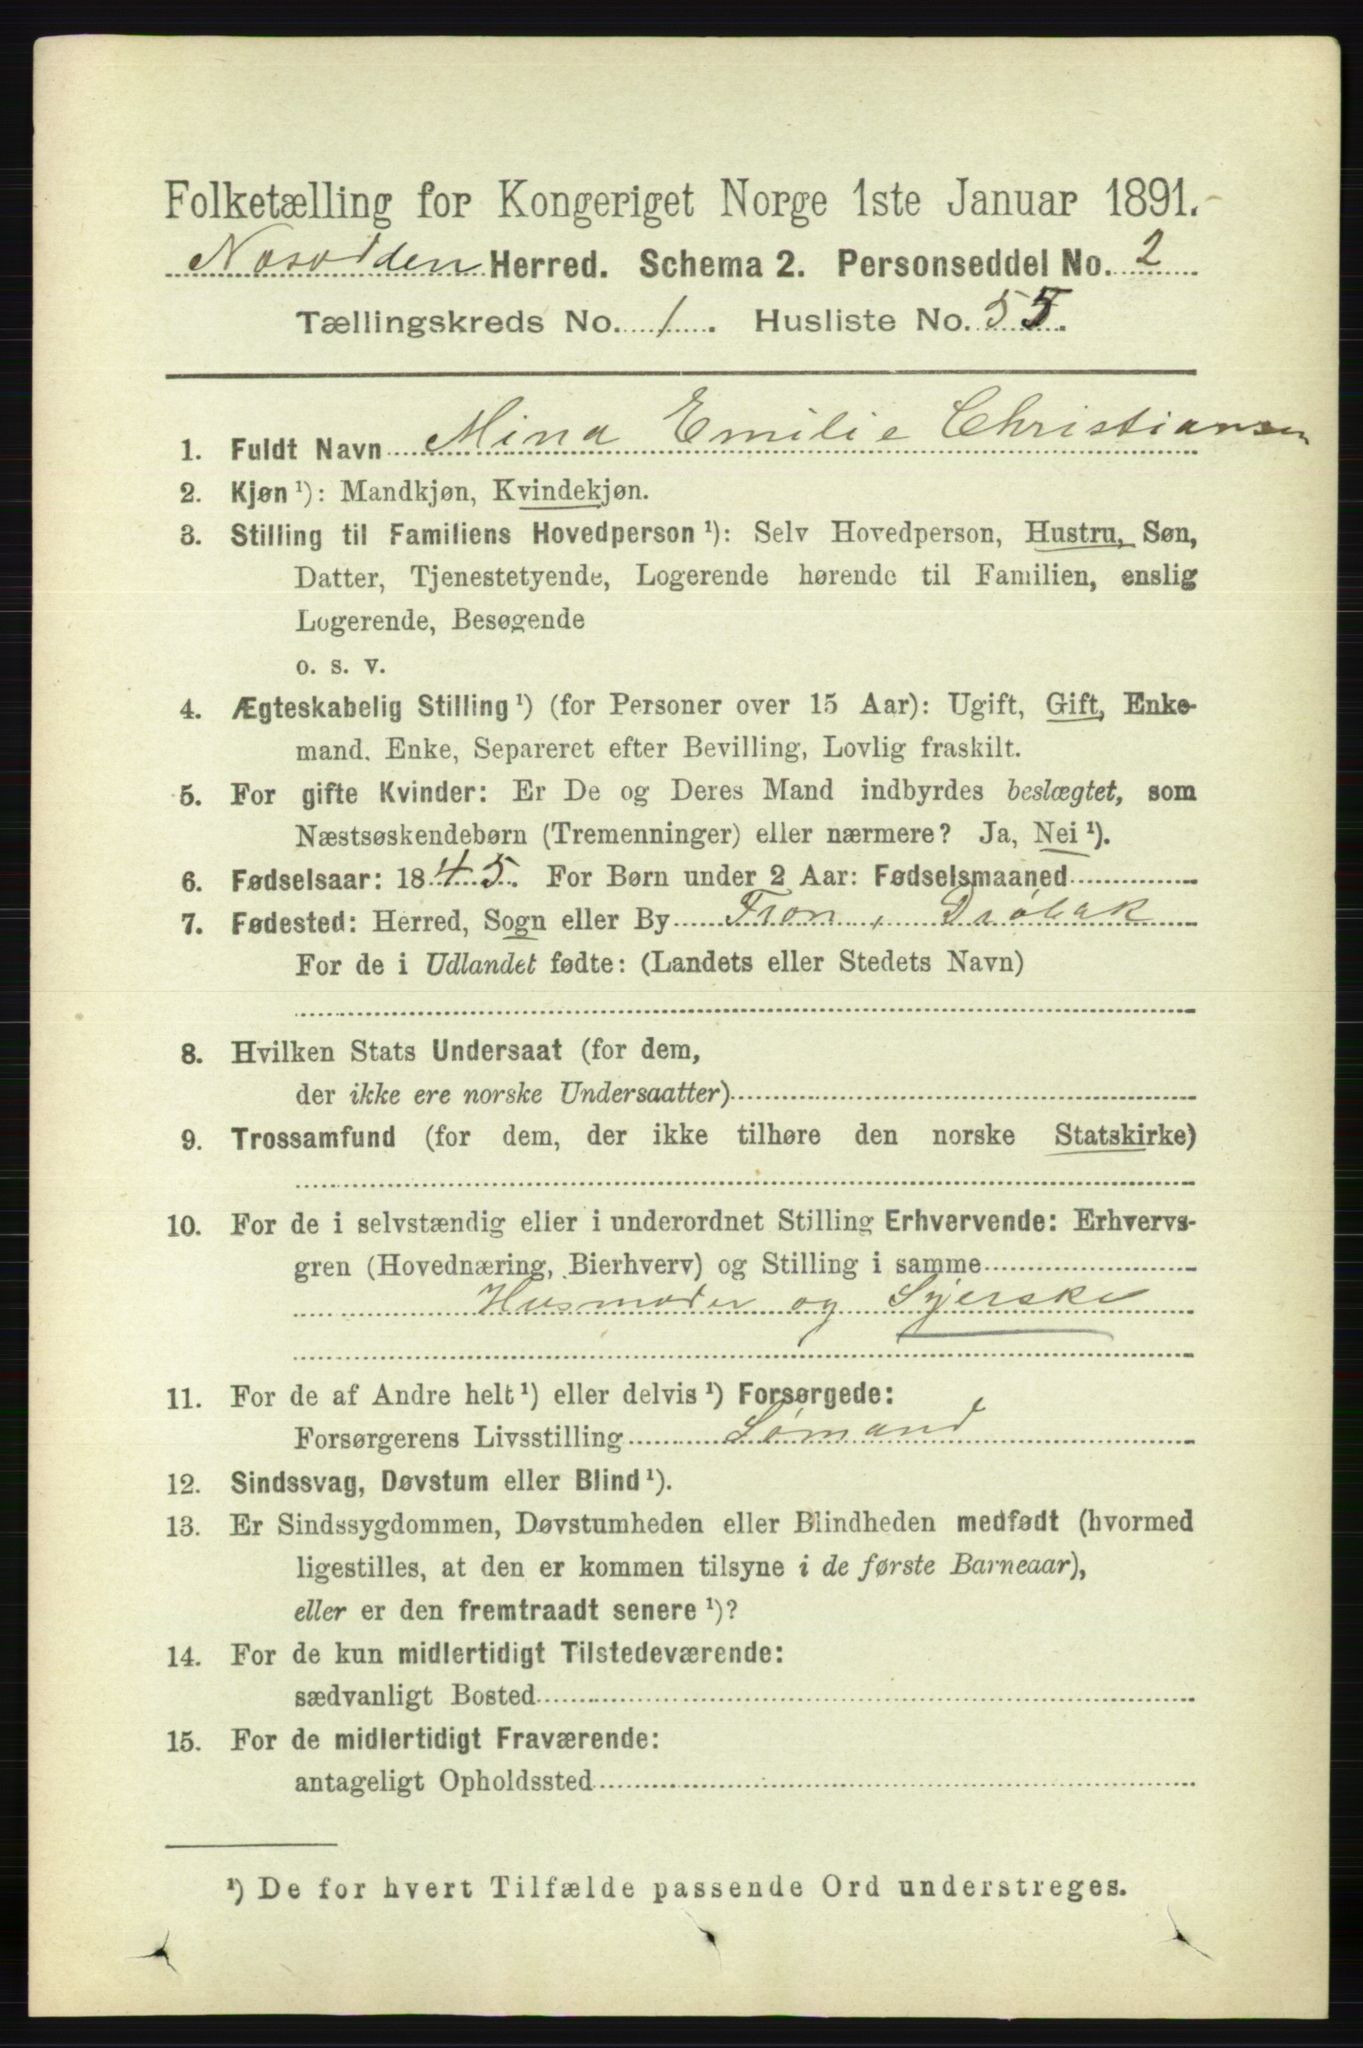 Folketælling for Kongeriget Norge 1ste Januar 1891.
Nesodden Herred. Schema 2. Personseddel No. 2
Tællingskreds No. 1. Husliste No. 55.
1. Fuldt Navn Mina Emilie Christiansen
2. Kjøn ¹): Mandkjøn, Kvindekjøn.
3. Stilling til Familiens Hovedperson ¹): Selv Hovedperson, Hustru, Søn,
Datter, Tjenestetyende, Logerende hørende til Familien, enslig
Logerende, Besøgende
o. s. v.
4. Ægteskabelig Stilling ¹) (for Personer over 15 Aar): Ugift, Gift, Enke-
mand. Enke, Separeret efter Bevilling, Lovlig fraskilt.
5. For gifte Kvinder: Er De og Deres Mand indbyrdes beslægtet, som
Næstsøskendebørn (Tremenninger) eller nærmere? Ja, Nei ¹).
6. Fødselsaar: 1845. For Børn under 2 Aar: Fødselsmaaned
7. Fødested: Herred, Sogn eller By Fron, Drøbak
For de i Udlandet fødte: (Landets eller Stedets Navn)
8. Hvilken Stats Undersaat (for dem,
der ikke ere norske Undersaatter)
9. Trossamfund (for dem, der ikke tilhøre den norske Statskirke)
10. For de i selvstændig eller i underordnet Stilling Erhvervende: Erhvervs-
gren (Hovednæring, Bierhverv) og Stilling i samme
Husmoder og Syerske
11. For de af Andre helt ¹) eller delvis ¹) Forsørgede:
Forsørgerens Livsstilling Sømand
12. Sindssvag, Døvstum eller Blind ¹).
13. Er Sindssygdommen, Døvstumheden eller Blindheden medfødt (hvormed
ligestilles, at den er kommen tilsyne i de første Barneaar),
eller er den fremtraadt senere ¹)?
14. For de kun midlertidigt Tilstedeværende:
sædvanligt Bosted
15. For de midlertidigt Fraværende:
antageligt Opholdssted
¹) De for hvert Tilfælde passende Ord understreges.